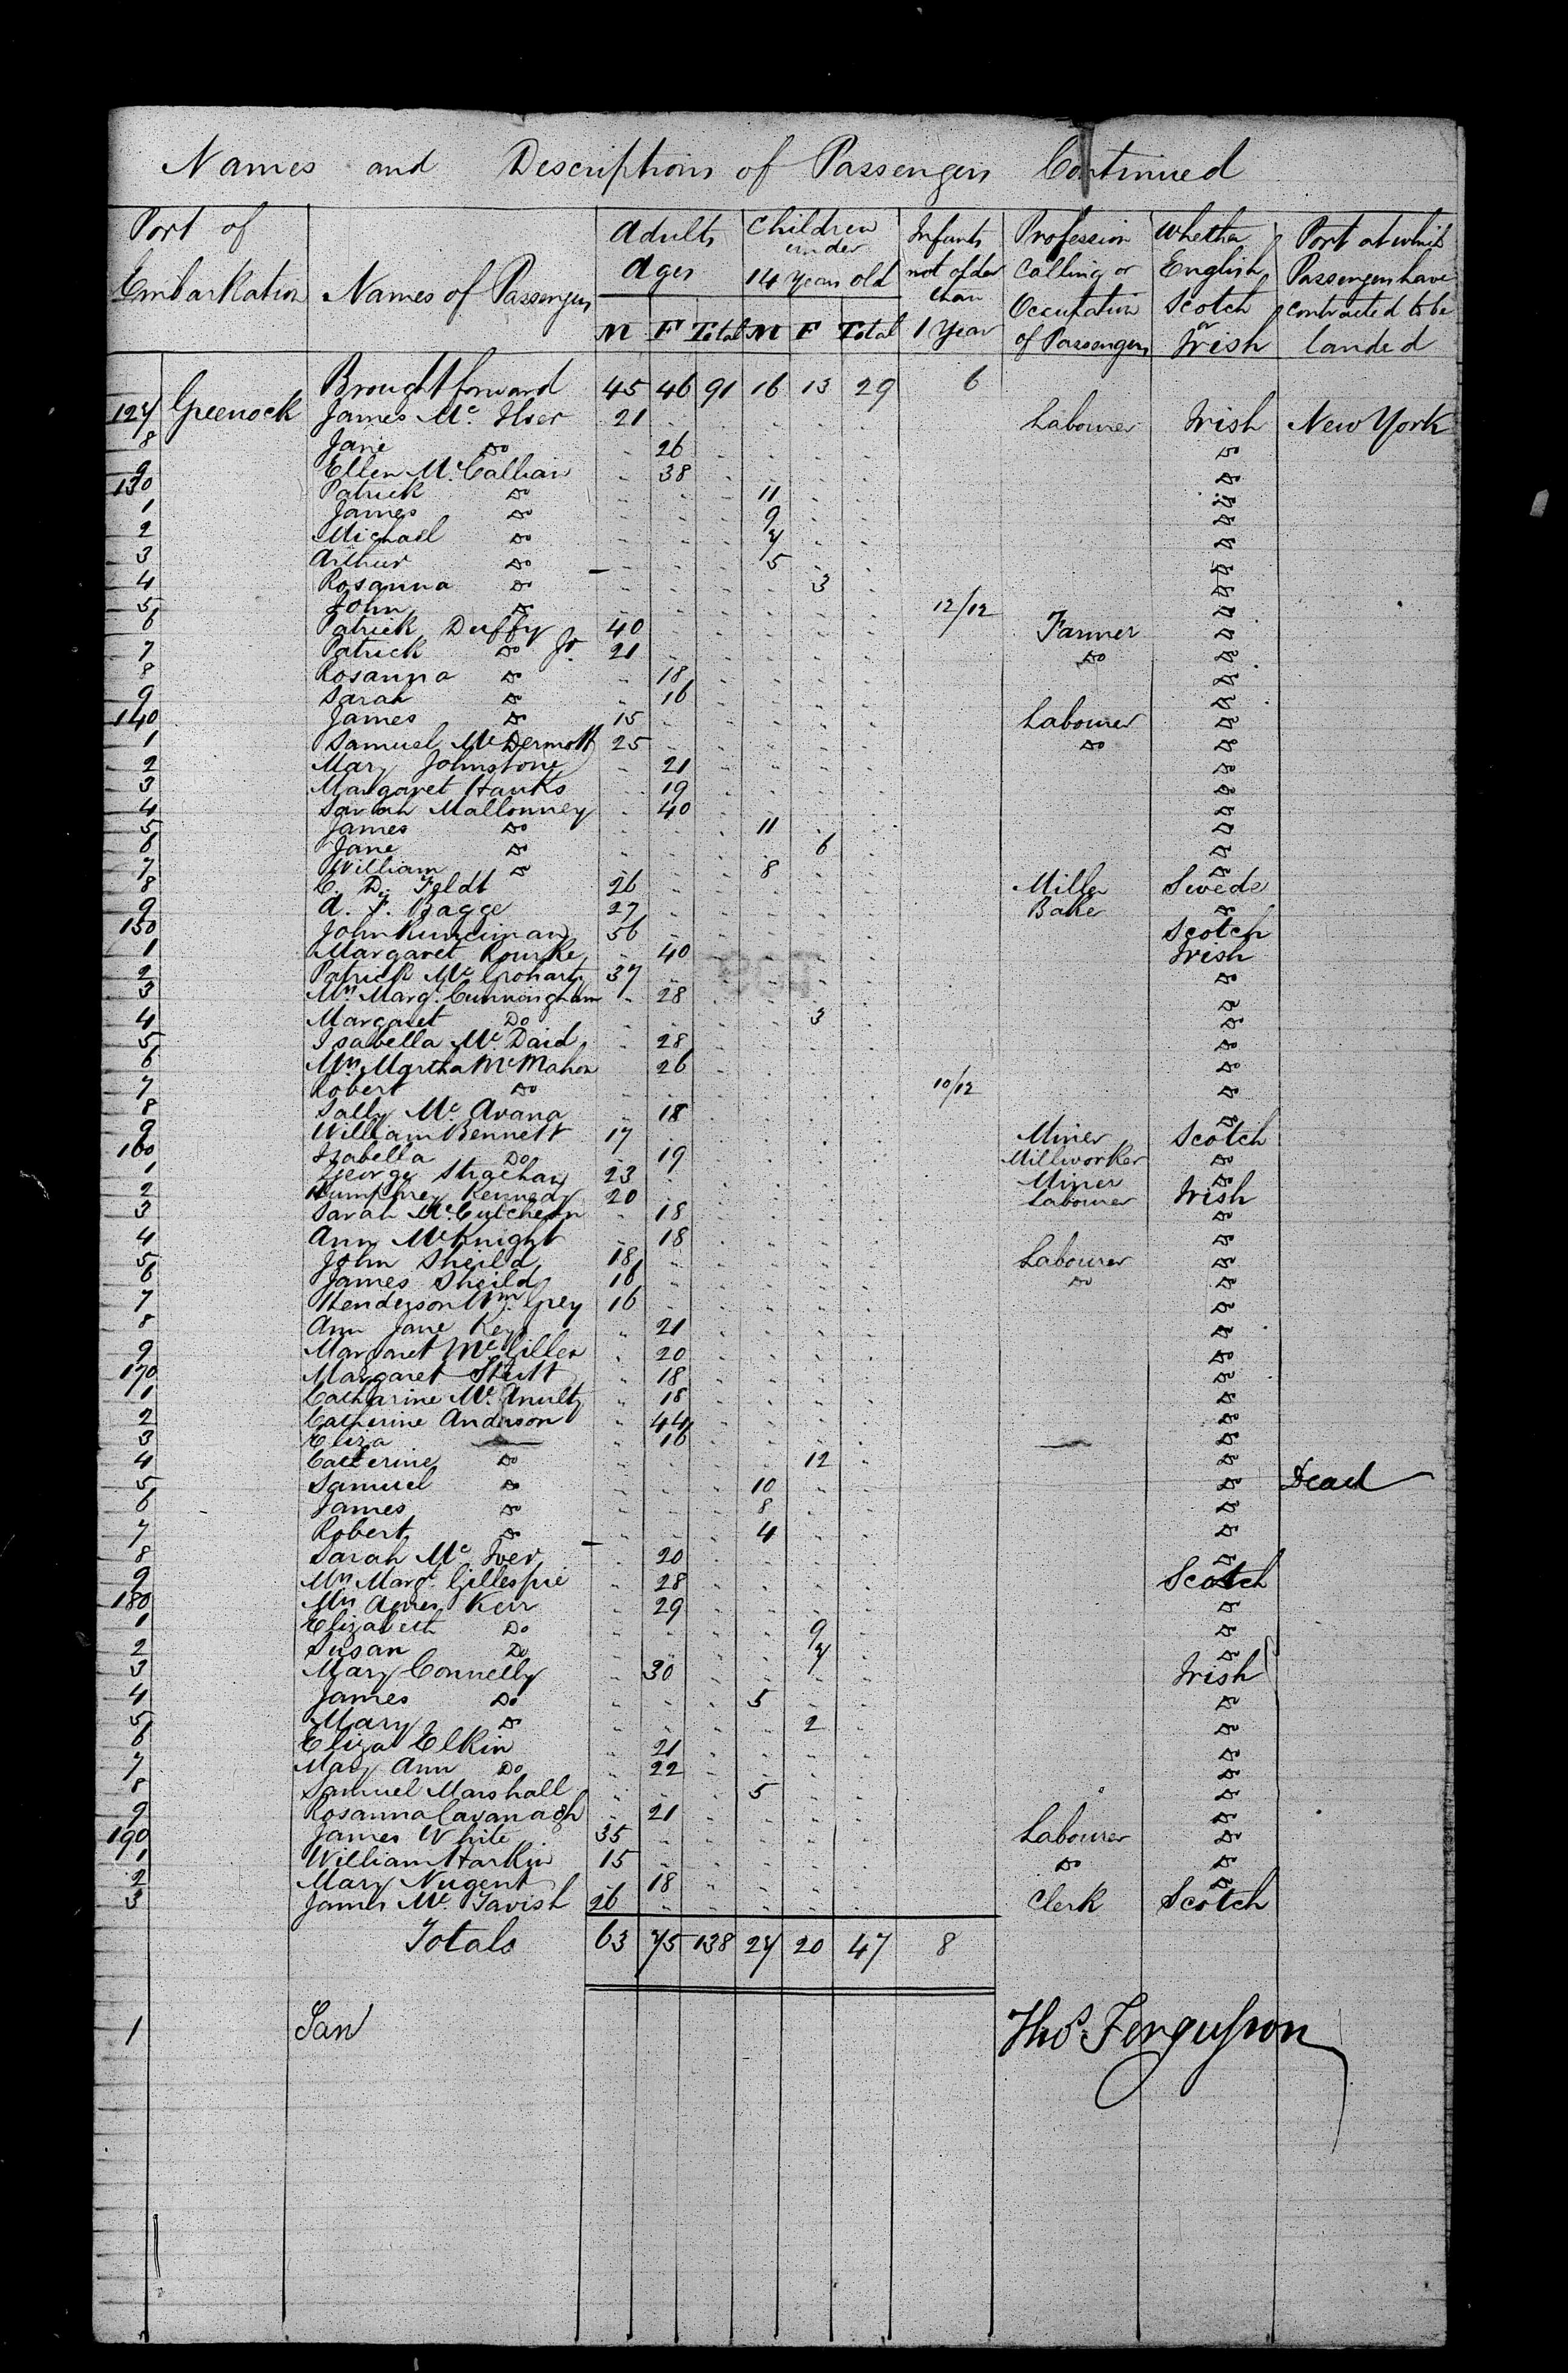 Names and Descriptions of Passengers Continued
Port of Embarkation | Names of Passengers | Adults Ages M F Total | Children under 14 Years old M F Total | Infants not older than 1 Year | Profession Calling or Occupation of Passengers | Whether English Scotch or Irish | Port at which Passengers have contracted to be landed
Brought forward 45 46 91 16 13 29 6
127 Greenock James Mc. 21 Labourer Irish New York
8 Jane Do 26 Do
9 Ellen Mc. Callian 38 Do
130 Patrick Do 11 Do
1 James Do 9 Do
2 Michael Do 7 Do
3 Arthur Do 5 Do
4 Rosanna Do 3 Do
5 John Do 12/12 Do
6 Patrick Duffy 40 Farmer Do
7 Patrick Do Jr. 21 Do Do
8 Rosanna Do 18 Do
9 Sarah Do 16 Do
140 James Do 15 Labourer Do
1 Samuel McDermott 25 Do Do
2 Mary Johnstone 21 Do
3 Margaret Hanks 19 Do
4 Sarah Mallonney 40 Do
5 James Do 11 Do
6 Jane Do 6 Do
7 William Do 8 Do
8 C. D. Feldt 26 Miller Swede
9 A. F. Bagge 27 Baker Do
150 John Runciman 56 Scotch
1 Margaret Rourke 40 Irish
2 Patrick Mc Groharty 37 Do
3 Mrs Margt. Cunningham 28 Do
4 Margaret Do 3 Do
5 Isabella Mc. Daid 28 Do
6 Mrs Martha McMahon 26 Do
7 Robert Do 10/12 Do
8 Sally Mc. Avana 18 Do
9 William Bennett 17 Miner Scotch
160 Isabella Do 19 Millworker Do
1 George Strachan 23 Miner Do
2 Humphrey Kennedy 20 Labourer Irish
3 Sarah McCutcheon 18 Do
4 Ann McKnight 18 Do
5 John Sheild 18 Labourer Do
6 James Sheild 16 Do Do
7 Henderson Wm. Grey 16 Do
8 Ann Jane Keys 21 Do
9 Margaret McGillen 20 Do
170 Margaret Stutt 18 Do
1 Catharine Mc. Anulty 18 Do
2 Catherine Anderson 44 Do
3 Eliza — 16 — Do
4 Catherine Do 12 Do
5 Samuel Do 10 Do Dead
6 James Do 8 Do
7 Robert Do 4 Do
8 Sarah Mc Iver 20 Do
9 Mrs Margt. Gillespie 28 Scotch
180 Mrs Agnes Kerr 29 Do
1 Elizabeth Do 9 Do
2 Susan Do 7 Do
3 Mary Connelly 30 Irish
4 James Do 5 Do
5 Mary Do 2 Do
6 Eliza Elkin 21 Do
7 Mary Ann Do 22 Do
8 Samuel Marshall 5 Do
9 Rosanna Cavanagh 21 Do
190 James White 35 Labourer Do
1 William Harkin 15 Do Do
2 Mary Nugent 18 Do
3 James Mc. Tavish 26 Clerk Scotch
Totals 63 75 138 27 20 47 8
1 Thos. Fergusson